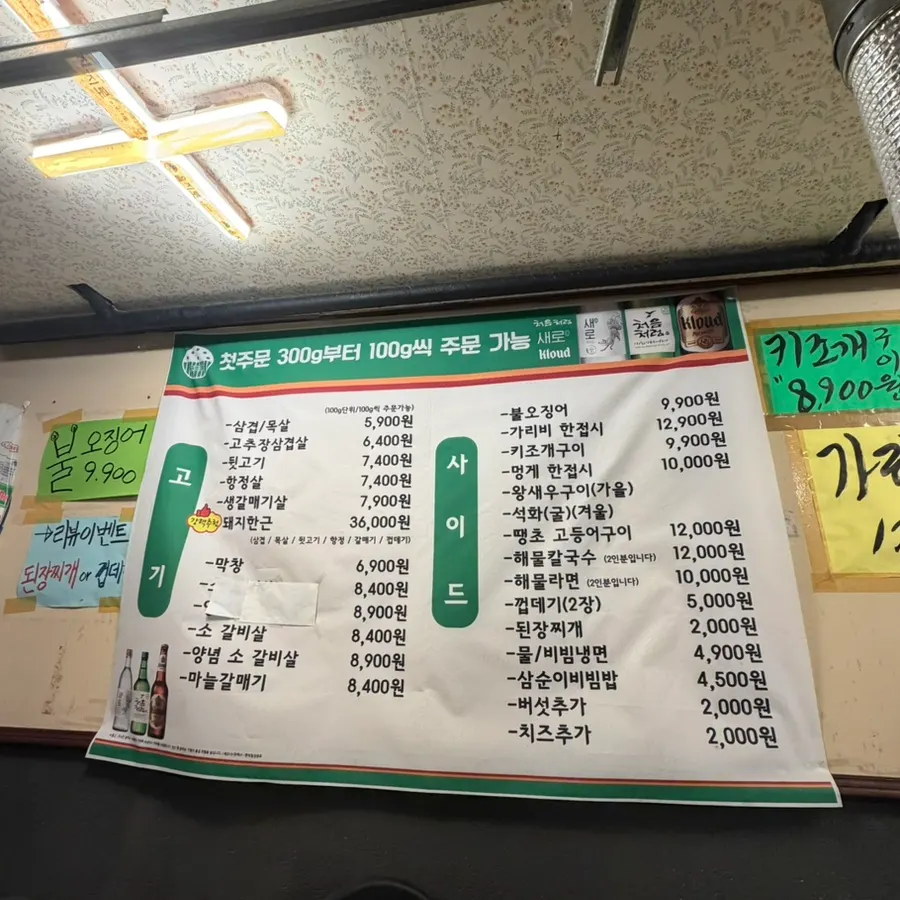 첫주문 300g부터 100g씩 주문 가능
처음처럼
새로
kloud
새로
처음처럼
kloud
고기
(100g단위/100g씩 주문가능)
-삼겹/목살 5,900원
-고추장삼겹살 6,400원
-뒷고기 7,400원
-항정살 7,400원
-생갈매기살 7,900원
강력추천 돼지한근 36,000원
(삼겹 / 목살 / 뒷고기 / 항정 / 갈매기 / 껍데기)
-막창 6,900원
8,400원
8,900원
-소 갈비살 8,400원
-양념 소 갈비살 8,900원
-마늘갈매기 8,400원
사이드
-불오징어 9,900원
-가리비 한접시 12,900원
-키조개구이 9,900원
-멍게 한접시 10,000원
-왕새우구이(가을)
-석화(굴)(겨울)
-땡초 고등어구이 12,000원
-해물칼국수 (2인분입니다) 12,000원
-해물라면 (2인분입니다) 10,000원
-껍데기(2장) 5,000원
-된장찌개 2,000원
-물/비빔냉면 4,900원
-삼순이비빔밥 4,500원
-버섯추가 2,000원
-치즈추가 2,000원
불오징어
9.900
→리뷰이벤트
된장찌개 or 껍데
키조개구이
8,900원